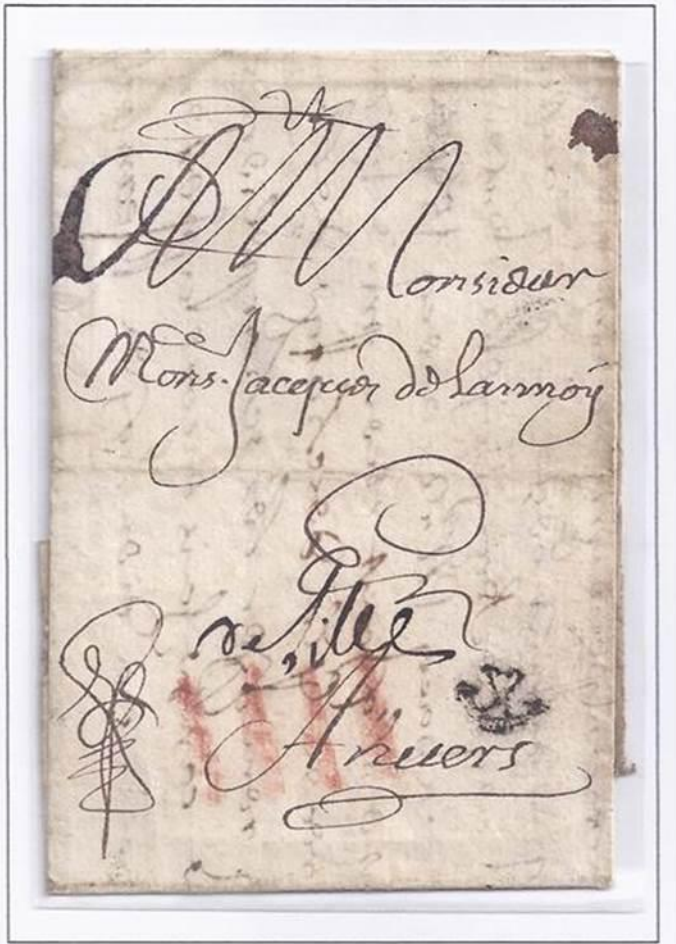 A Monsieur
Mons. Jacques de Lannoy
de Lille
Anuers